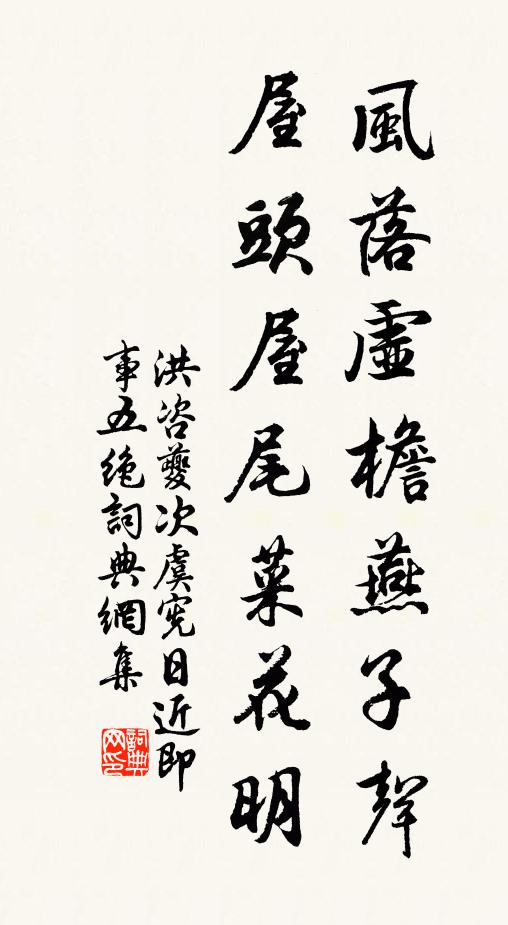 風落虛檐燕子聲
屋頭屋尾菜花明
洪咨夔次虞憲日近即
事五絶詞典網集
詞典
网印